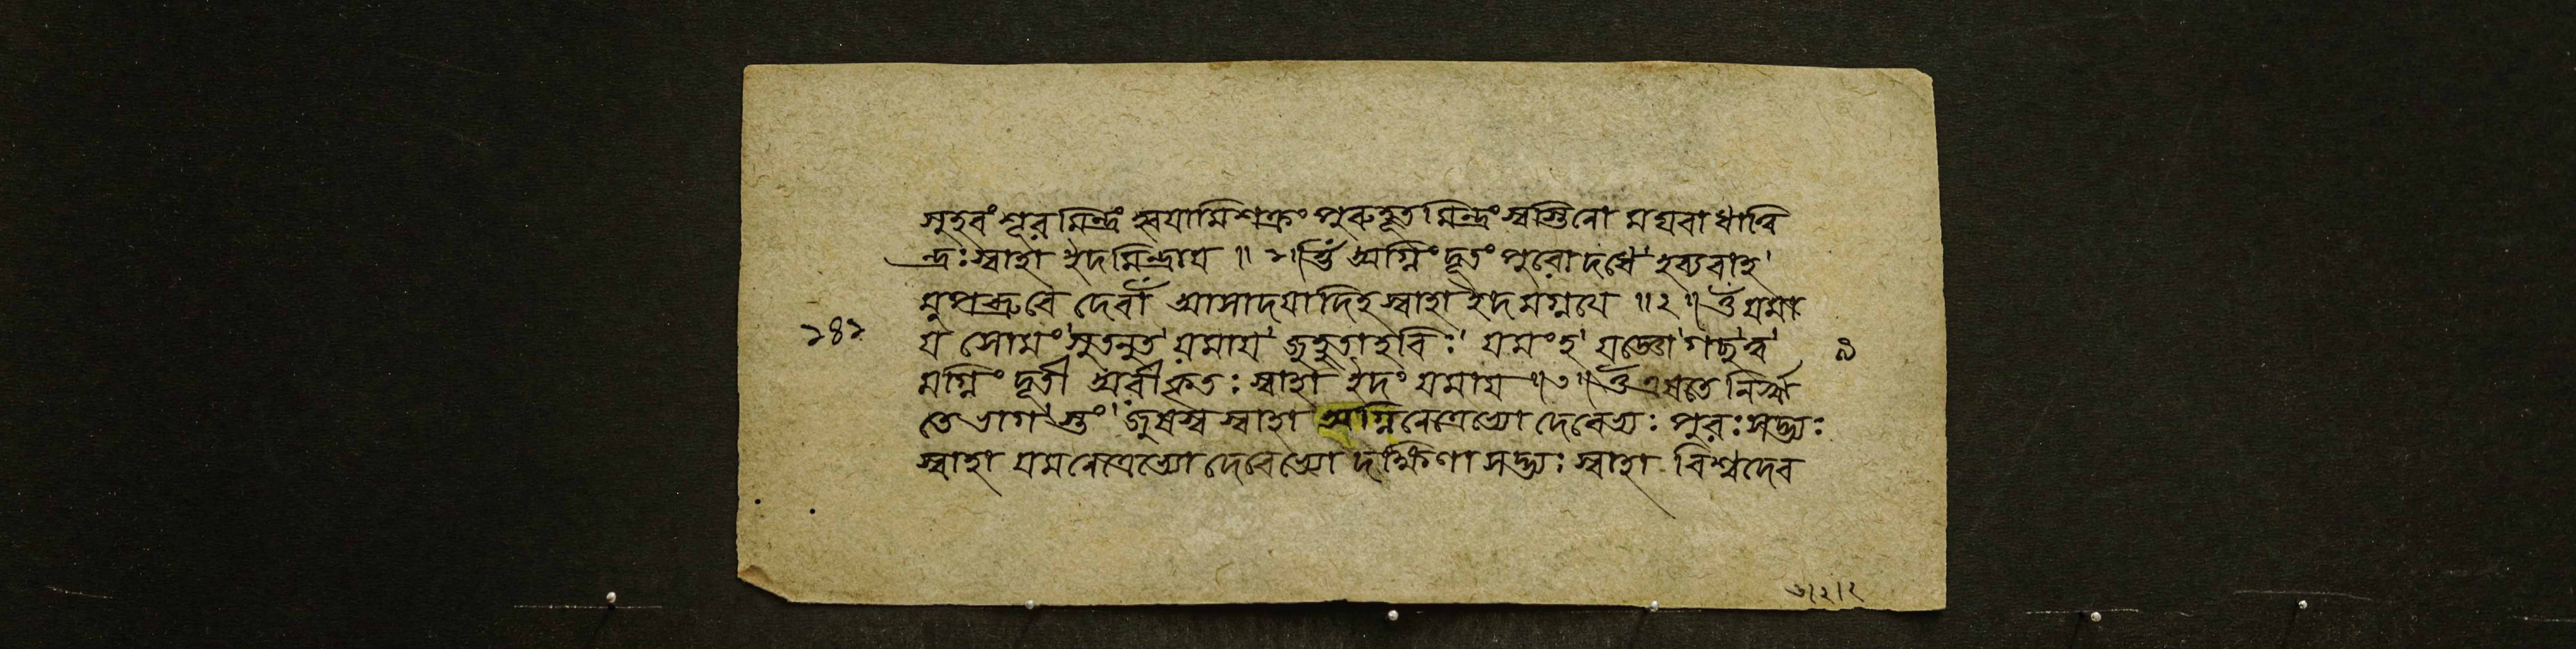 সুহবং শূরমিন্দ্রং হ্বয়ামিশক্রং পুরুহূতমিন্দ্রং স্বস্তিনো মঘবাধাত্বি
ন্দ্রঃ স্বাহা ইদমিন্দ্রায় ॥ ১॥ ওঁ অগ্নিং দূতং পুরোদধে হব্যবাহ
মুপব্রুবে দেবাঁ আসাদয়াদিহ স্বাহা ইদমগ্নয়ে ॥ ২ ॥ ওঁ যমা
য় সোমং সুতনুত যমায় জুহুতাহবিঃ যমংহ যজ্ঞো গচ্ছত্ব
মগ্নিং দূতী অরীকৃতঃ স্বাহা ইদং যমায় ॥ ৩ ॥ ওঁ এষতে নিরৃ
তে ভাগ স্তং জুষস্ব স্বাহা অগ্নিনেত্রেভ্যো দেবেভ্যঃ পুরঃসদ্ভ্যঃ
স্বাহা যমনেত্রেভ্যো দেবেভ্যো দক্ষিণাসদ্ভ্যঃ স্বাহা বিশ্বদেব
১৪১
৯